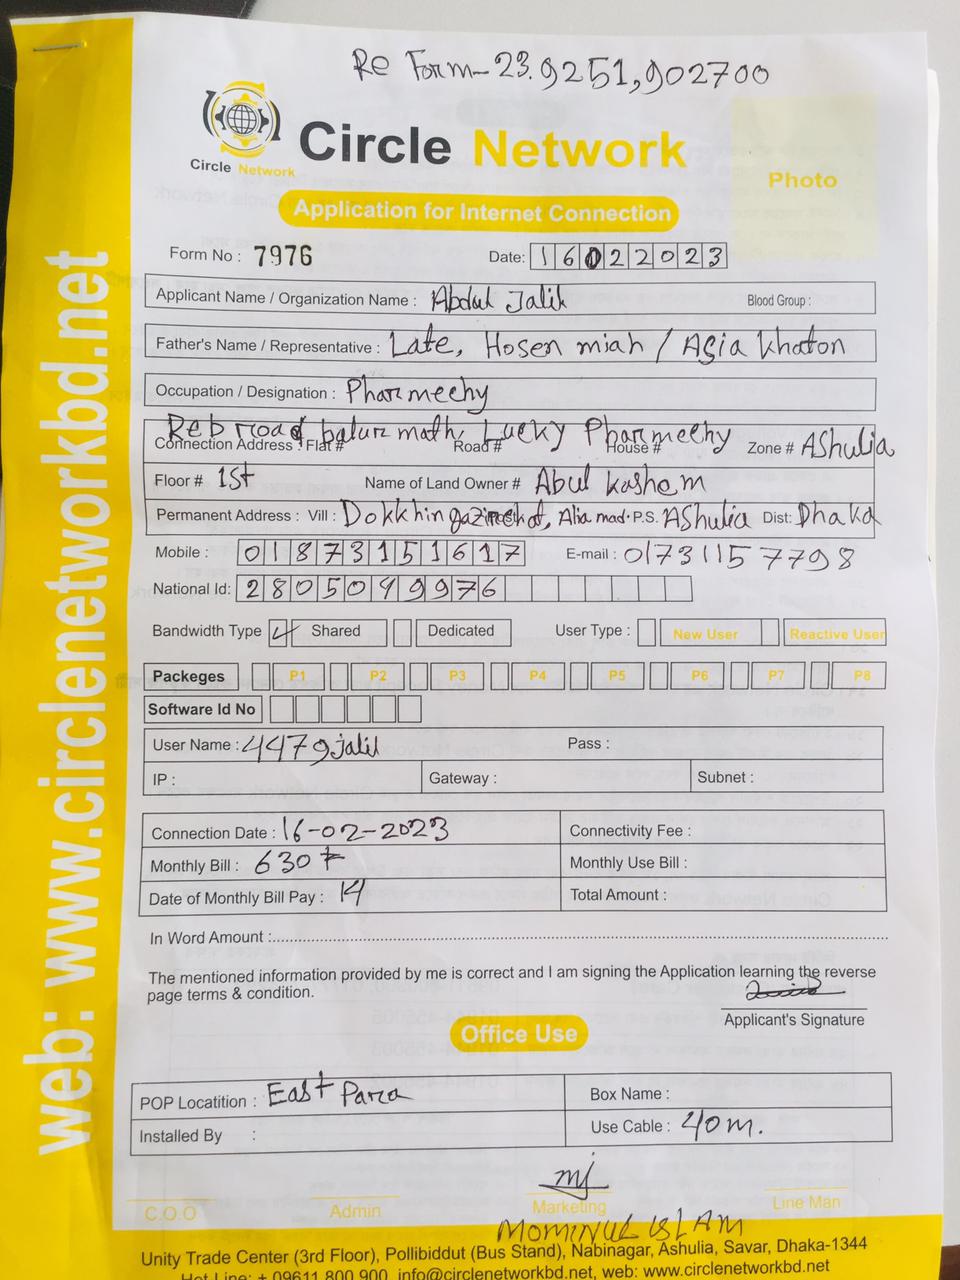 Re Form-23.9251,902700
Circle Network
Circle Network
Photo
Application for Internet Connection
Form No : 7976 Date: 16022023
Applicant Name / Organization Name : Abdul Jalil Blood Group :
Father's Name / Representative : Late, Hosen miah / Asia Khaton
Occupation / Designation : Pharmechy
Reb road balur math, Lucky Pharmechy
Connection Address : Flat # Road # House # Zone # AShulia
Floor # 1st Name of Land Owner # Abul kashem
Permanent Address : Vill : Dokkhin gazirchot, Alia mad. P.S. AShulia Dist: Dhaka
Mobile : 01873151617 E-mail : 01731157798
National Id: 2805099976
Bandwidth Type Shared Dedicated User Type : New User Reactive User
Packeges P1 P2 P3 P4 P5 P6 P7 P8
Software Id No
User Name : 4479jalil Pass :
IP : Gateway : Subnet :
Connection Date : 16-02-2023 Connectivity Fee :
Monthly Bill : 630 Monthly Use Bill :
Date of Monthly Bill Pay : 14 Total Amount :
In Word Amount :
The mentioned information provided by me is correct and I am signing the Application learning the reverse
page terms & condition.
Applicant's Signature
Office Use
POP Locatition : East Para Box Name :
Installed By : Use Cable : 40m.
C.O.O Admin Marketing Line Man
MOMINUL ISLAM
Unity Trade Center (3rd Floor), Pollibiddut (Bus Stand), Nabinagar, Ashulia, Savar, Dhaka-1344
Hot Line: + 09611 800 900, info@circlenetworkbd.net, web: www.circlenetworkbd.net
web: www.circlenetworkbd.net